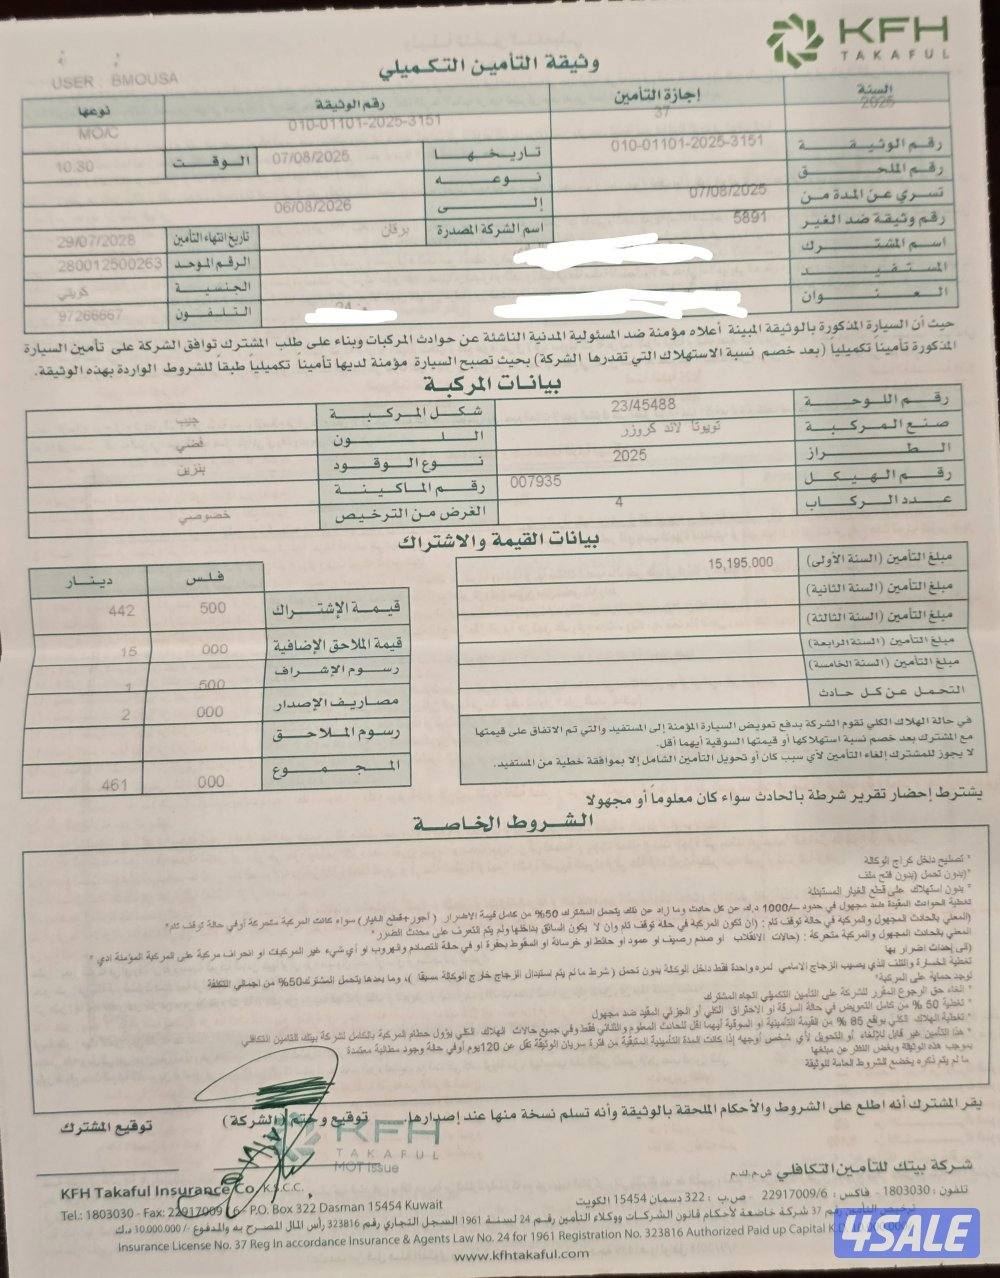 KFH
TAKAFUL
وثيقة التأمين التكميلي
USER : BMOUSA
السنة
2025
إجازة التأمين
37
رقم الوثيقة
010-01101-2025-3151
نوعها
MO/C
رقم الوثيقة
010-01101-2025-3151
تاريخها
07/08/2025
الوقت
10.30
رقم الملحق
نوعه
تسري عن المدة من
07/08/2025
إلى
06/08/2026
رقم وثيقة ضد الغير
5891
اسم الشركة المصدرة
برقان
تاريخ انتهاء التأمين
29/07/2028
اسم المشترك
الرقم الموحد
280012500263
المستفيد
الجنسية
كويتي
العنوان
التلفون
97266667
حيث أن السيارة المذكورة بالوثيقة المبينة أعلاه مؤمنة ضد المسئولية المدنية الناشئة عن حوادث المركبات وبناء على طلب المشترك توافق الشركة على تأمين السيارة
المذكورة تأميناً تكميلياً (بعد خصم نسبة الاستهلاك التي تقدرها الشركة) بحيث تصبح السيارة مؤمنة لديها تأميناً تكميلياً طبقاً للشروط الواردة بهذه الوثيقة.
بيانات المركبة
رقم اللوحة
23/45488
شكل المركبة
جيب
صنع المركبة
تويوتا لاند كروزر
اللون
فضي
الطراز
2025
نوع الوقود
بنزين
رقم الهيكل
007935
رقم الماكينة
عدد الركاب
4
الغرض من الترخيص
خصوصي
بيانات القيمة والاشتراك
مبلغ التأمين (السنة الأولى)
15,195.000
مبلغ التأمين (السنة الثانية)
مبلغ التأمين (السنة الثالثة)
مبلغ التأمين (السنة الرابعة)
مبلغ التأمين (السنة الخامسة)
التحمل عن كل حادث
في حالة الهلاك الكلي تقوم الشركة بدفع تعويض السيارة المؤمنة إلى المستفيد والتي تم الاتفاق على قيمتها
مع المشترك بعد خصم نسبة استهلاكها أو قيمتها السوقية أيهما أقل.
لا يجوز للمشترك إلغاء التأمين لأي سبب كان أو تحويل التأمين الشامل إلا بموافقة خطية من المستفيد.
فلس
دينار
قيمة الإشتراك
500
442
قيمة الملاحق الإضافية
000
15
رسوم الإشراف
500
1
مصاريف الإصدار
000
2
رسوم الملاحق
المجموع
000
461
يشترط إحضار تقرير شرطة بالحادث سواء كان معلوماً أو مجهولا
الشروط الخاصة
* تصليح داخل كراج الوكالة
*(بدون تحمل (بدون فتح ملف
* بدون استهلاك على قطع الغيار المستبدلة
تغطية الحوادث المقيدة ضد مجهول في حدود --/1000 د.ك. عن كل حادث وما زاد عن ذلك يتحمل المشترك 50% من كامل قيمة الاضرار ( أجور+قطع الغيار) سواء كانت المركبة متحركة أو في حالة توقف تام*
(المعني بالحادث المجهول والمركبة في حالة توقف تام : (ان تكون المركبة في حالة توقف تام وان لا يكون السائق بداخلها ولم يتم التعرف على محدث الضرر*
المعني بالحادث المجهول والمركبة متحركة : (حالات الانقلاب او صدم رصيف او عمود او حائط او خرسانة او السقوط بحفرة او في حالة التصادم والهروب او أي شيء غير المركبات او انحراف مركبة على المركبة المؤمنة ادي *
(إلى إحداث اضرار بها
تغطية الخسارة والتلف الذي يصيب الزجاج الامامي لمره واحدة فقط داخل الوكالة بدون تحمل ( شرط ما لم يتم استبدال الزجاج خارج الوكالة مسبقا )، وما بعدها يتحمل المشترك 50% من اجمالي التكلفة
توجد حماية على المركبة*
* الغاء حق الرجوع المقرر للشركة على التأمين التكميلي اتجاه المشترك
* تغطية 50 % من كامل التعويض في حالة السرقة او الاحتراق الكلي أو الجزئي المقيد ضد مجهول
* تغطية الهلاك الكلي بواقع 85 % من القيمة التأمينية او السوقية أيهما اقل للحادث المعلوم والثنائي فقط وفي جميع حالات الهلاك الكلي يؤول حطام المركبة بالكامل لشركة بيتك للتامين التكافلي
* هذا التأمين غير قابل للإلغاء أو التحويل لأي شخص أوجهه إذا كانت المدة التأمينية المتبقية من فترة سريان الوثيقة تقل عن 120يوم أو في حالة وجود مطالبة معتمدة
بموجب هذه الوثيقة وبغض النظر عن مبلغها
ما لم يتم ذكره يخضع للشروط العامة للوثيقة
يقر المشترك أنه اطلع على الشروط والأحكام الملحقة بالوثيقة وأنه تسلم نسخة منها عند إصدارها.
توقيع وختم (الشركة)
توقيع المشترك
KFH
TAKAFUL
MOT Issue
شركة بيتك للتأمين التكافلي ش.م.ك.م
KFH Takaful Insurance Co. K.S.C.C.
تلفون : 1803030 - فاكس : 22917009/6 - ص.ب : 322 دسمان 15454 الكويت
Tel.: 1803030 - Fax: 22917009/6 - P.O. Box 322 Dasman 15454 Kuwait
ترخيص رقم 37 شركة خاضعة لأحكام قانون الشركات ووكلاء التأمين رقم 24 لسنة 1961 السجل التجاري رقم 323816 رأس المال المصرح به والمدفوع /- 10.000.000 د.ك
Insurance License No. 37 Reg in accordance Insurance & Agents Law No. 24 for 1961 Registration No. 323816 Authorized Paid up Capital K.D.
www.kfhtakaful.com
4SALE